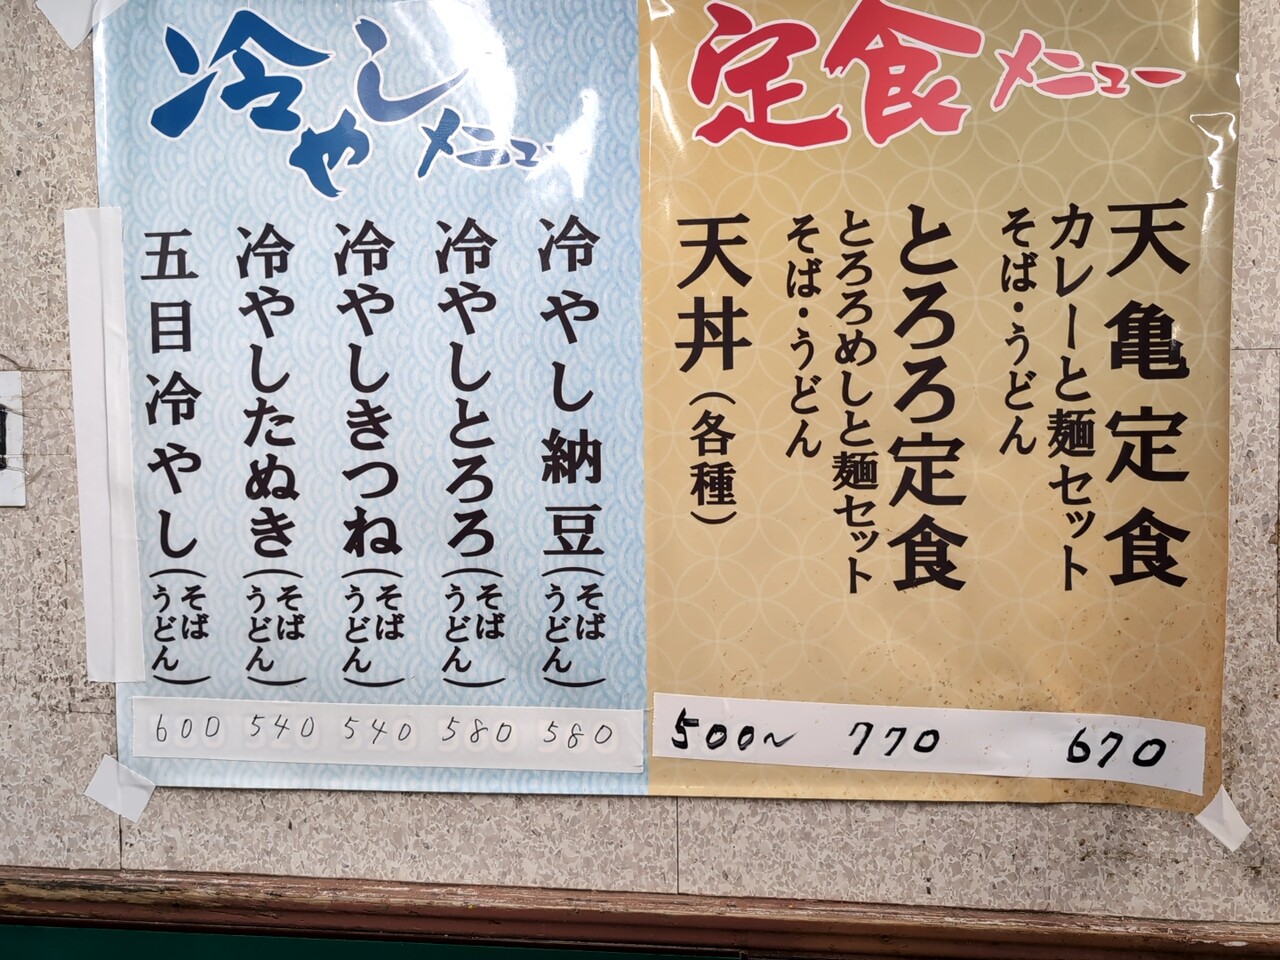 定食メニュー
天亀定食
カレーと麺セット
そば・うどん
670
とろろ定食
とろろめしと麺セット
そば・うどん
770
天丼(各種)
500〜
冷やしメニュー
冷やし納豆(そばうどん)
580
冷やしとろろ(そばうどん)
580
冷やしきつね(そばうどん)
540
冷やしたぬき(そばうどん)
540
五目冷やし(そばうどん)
600